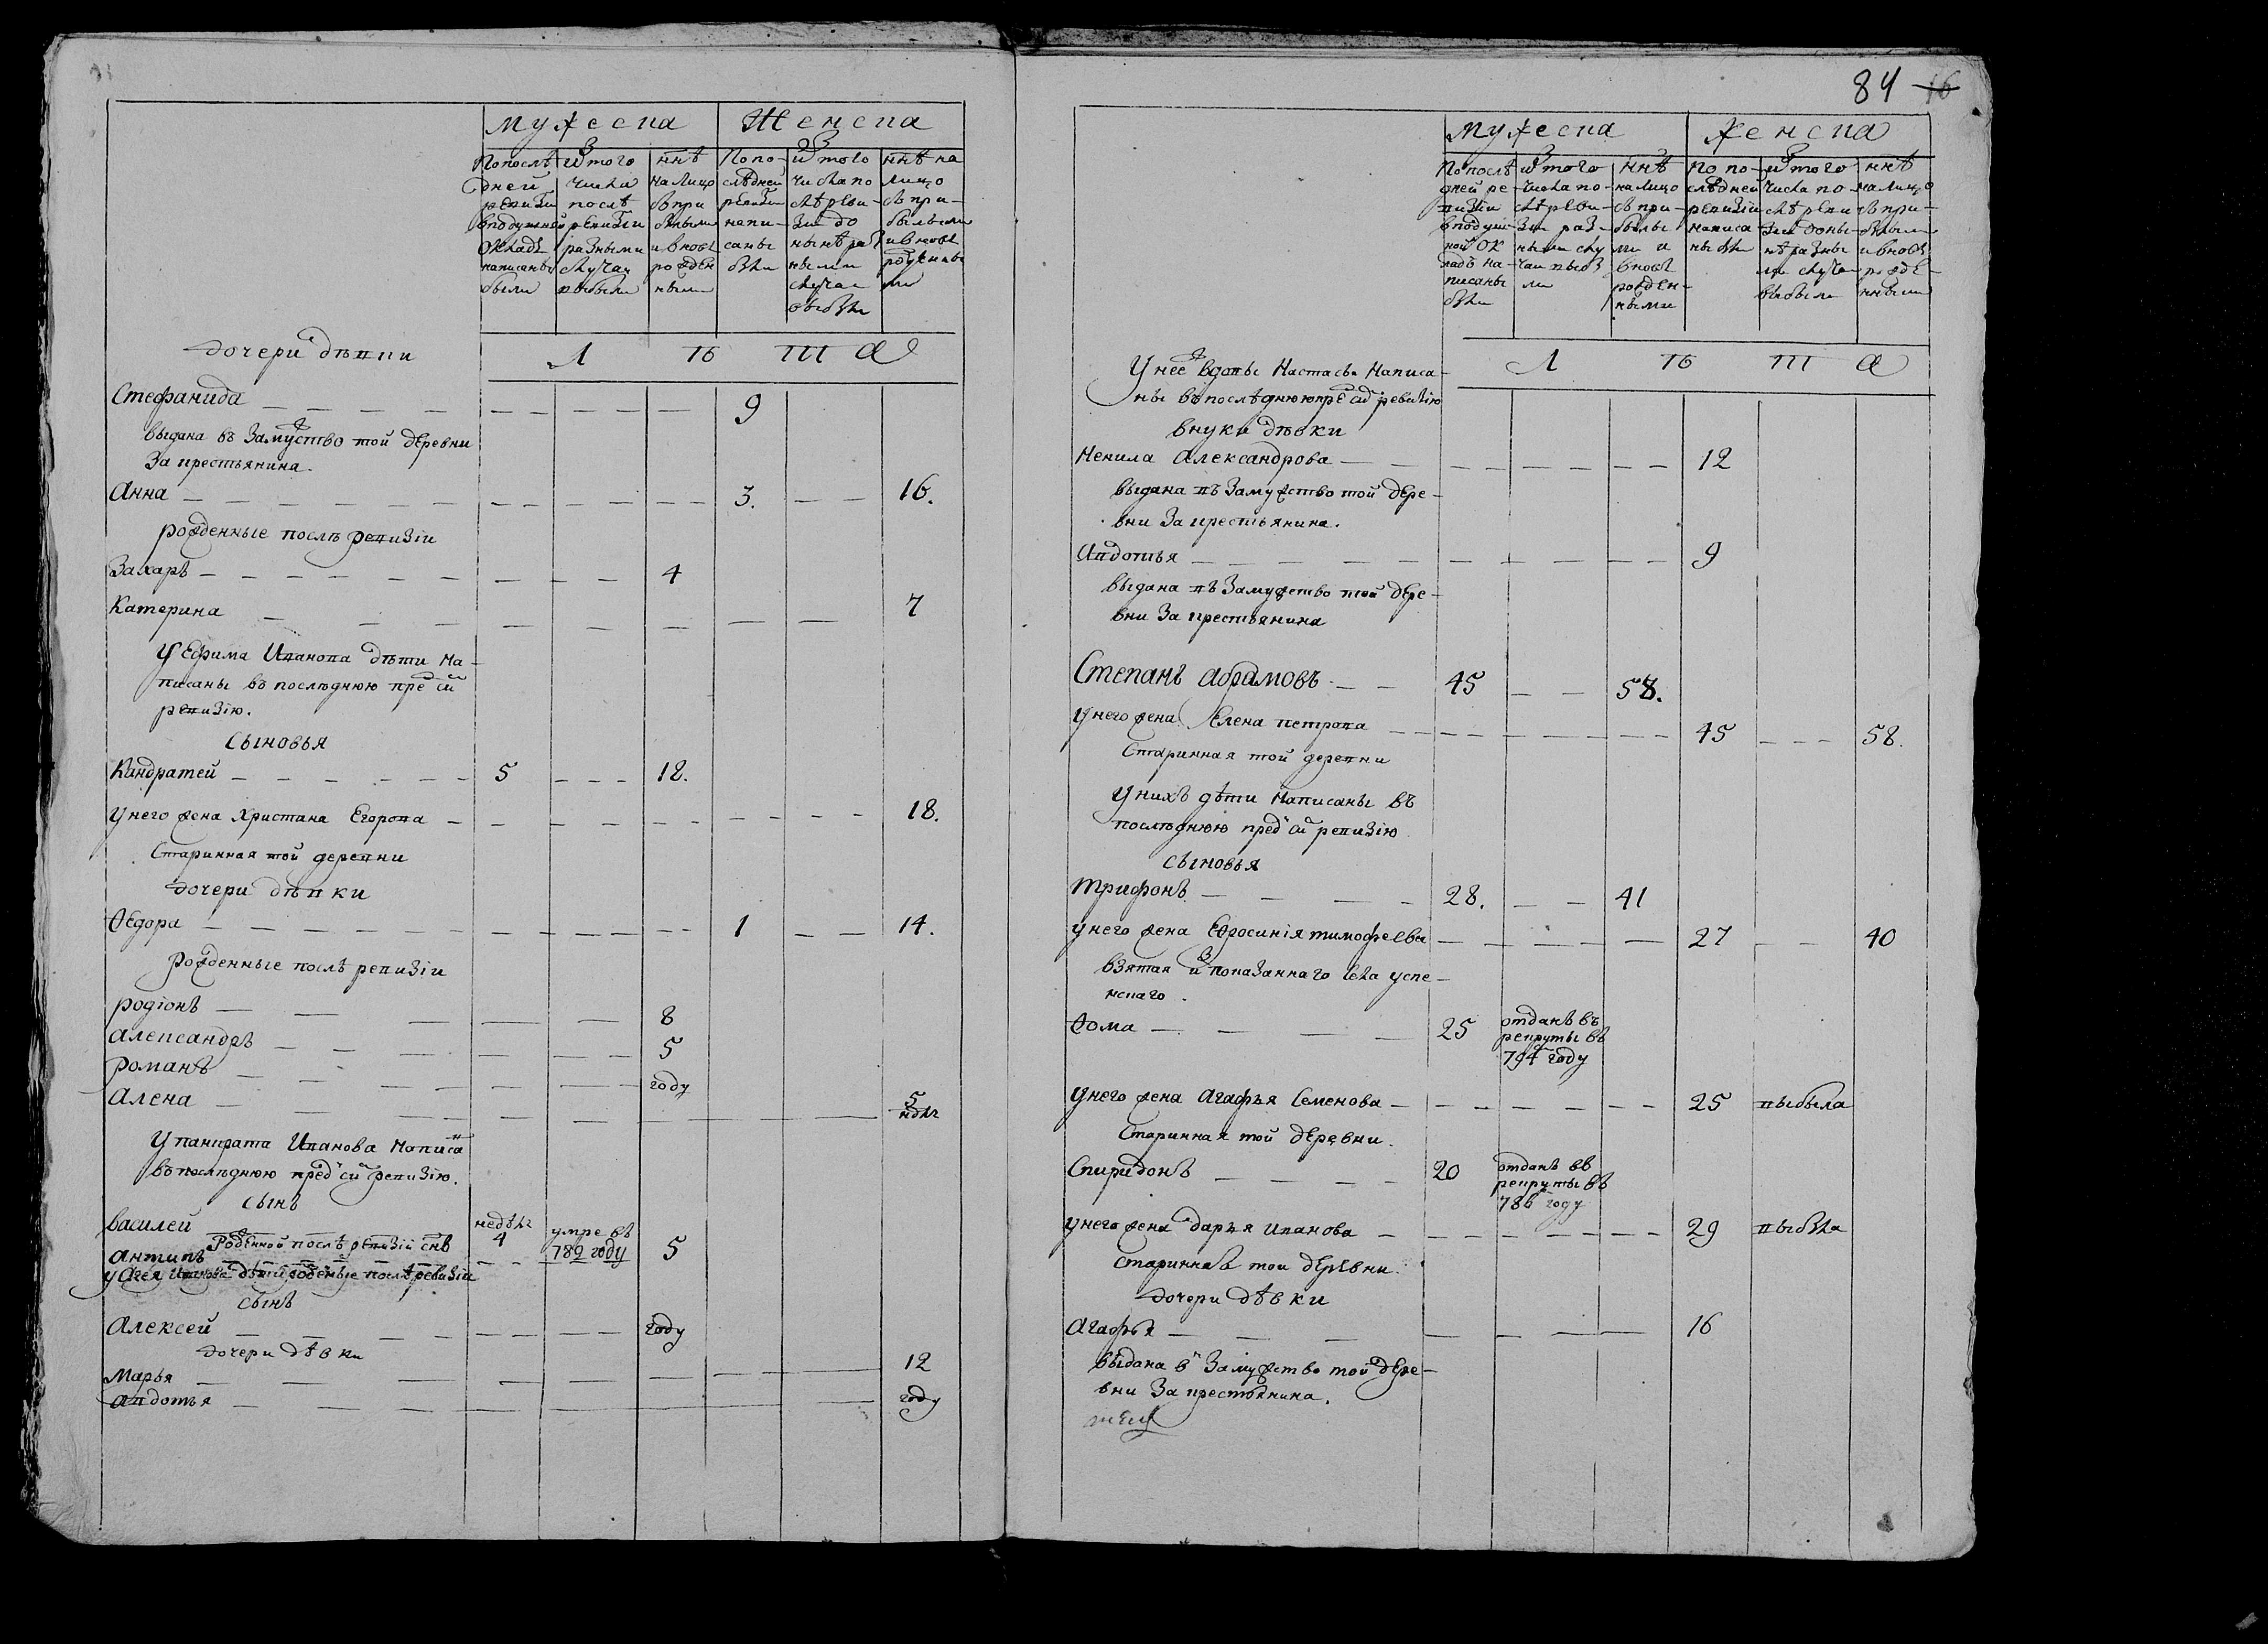 Мужеска Женска
По послѣ-
дней
ревизіи
в подушной
окладъ
написаны
были
изъ того
числа
послѣ
ревизіи
разными
случаи
выбыли
ннѣ
на лицо
съ при
былыми
и вновь
рожден
ными
По по-
слѣдней
ревизіи
напи-
саны
были
изъ того
числа по
слѣ реви-
зіи до
нынѣ раз
ными
случаи
выбыли
ннѣ на
лицо
съ при-
былыми
и вновь
рожденны
ми
Л ѣ т а
дочери дѣвки
Стефанида 9
выдана въ замужство той деревни
за крестьянина.
Анна 3. 16.
рожденные послѣ ревизіи
Захаръ 4
Катерина 7
У Ефима Иванова дѣти На-
писаны въ послѣднюю пред сій
ревизію.
сыновья
Кандратей 5 12.
у него жена Христина Егорова 18.
Старинная той деревни
дочери дѣвки
Ѳедора 1 14.
Рожденные послѣ ревизіи
родіонъ 8
александръ 5
романъ году
алена 5 ндѣл
У панкрата Иванова Написа н
въ послѣднюю пред сій ревизію.
сынъ
василей недѣль 4 умре въ 782 году
Рожденной послѣ ревизіи снъ
антипъ 5
у Агея Иванова дѣти рожденые послѣ ревизіи
сынъ
Алексей году
дочери дѣвки
Марья 12
авдотья году
84 16
Мужеска Женска
По послѣ
дней ре-
визіи
в подуш-
ной ок
ладъ на-
писаны
были
изъ того
числа по-
слѣ реви-
зіи раз-
ными слу
чаи выбы
ли
ннѣ
на лицо
съ при-
былы
ми и
вновь
рожден-
ными
по по-
слѣдней
ревизіи
написа
ны были
изъ того
числа по
слѣ реви
зіи до ны-
нѣ разны
ми случа
выбыли
ннѣ
на лицо
съ при-
былыми
и вновь
рожде-
нными
Л ѣ т а
У нее вдовы Настасьи Написа-
ны въ послѣднюю пред сій ревизію
внуки дѣвки
Ненила Александрова 12
выдана въ замужство той дере-
вни за крестьянина.
Авдотья 9
выдана въ замужство той дере-
вни за крестьянина
Степанъ абрамовъ 45 58.
у него жена Елена петрова 45 58.
Старинная той деревни
у нихъ дѣти Написаны въ
послѣднюю пред сій ревизію
сыновья
трифонъ 28. 41
у него жена Ефросинія тимофеева 27 40
взятая из показаннаго села успе-
нскаго.
Ѳома 25 отданъ въ
рекруты въ
794 году
у него жена Агафья Семенова 25 выбыла
Старинная той деревни.
Спиридонъ 20 отданъ въ
рекруты въ
786 году
у него жена дарья иванова 29 выбыла
Старинная той деревни.
дочери дѣвки
агафья 16
выдана в замужство той дере-
вни за крестьянина.